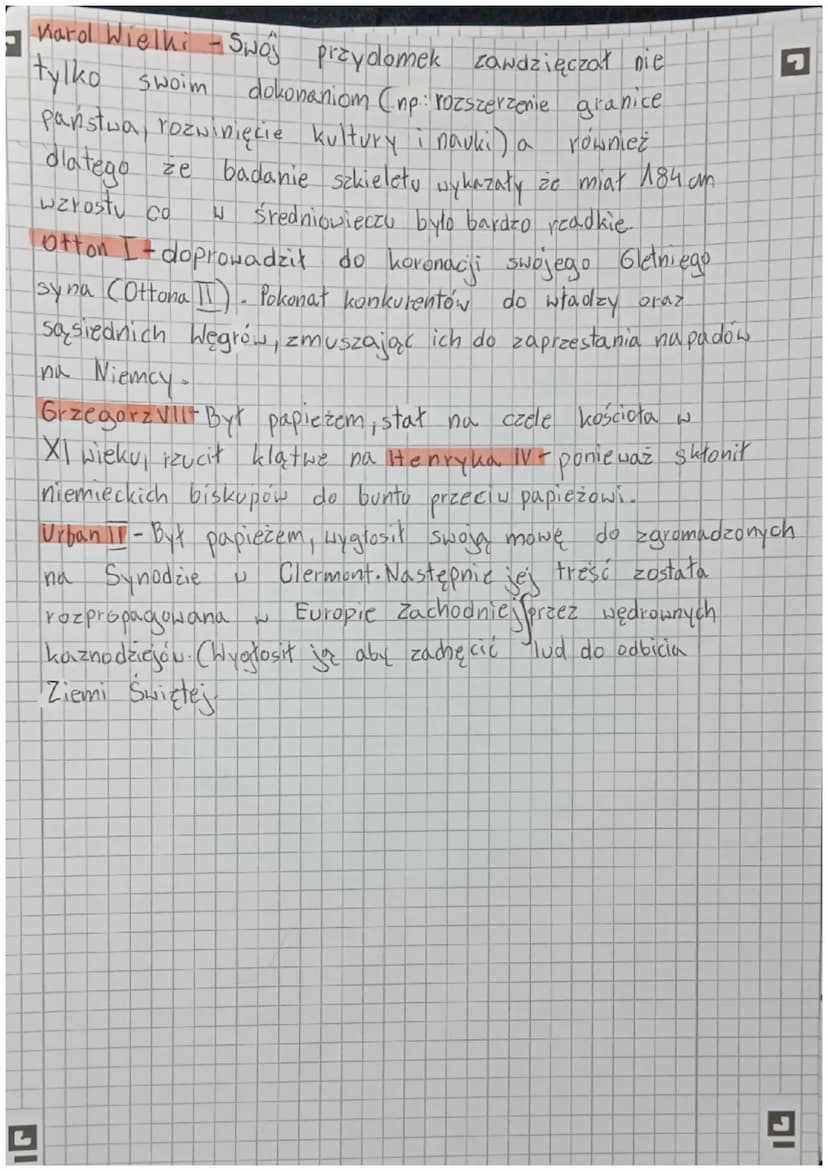 Karol Wielki - Swój przydomek zawdzięczał nie
tylko swoim dokonaniom (np: rozszerzenie granice
państwa, rozwinięcie kultury i nauki) a również
dlatego że badanie szkieletu wykazały że miał 184 cm
wzrostu co w średniowieczu było bardzo rzadkie
Otton I - doprowadził do koronacji swojego 6letniego
syna (Ottona II). Pokonał konkurentów do władzy oraz
sąsiednich Węgrów, zmuszając ich do zaprzestania napadów
na Niemcy.
Grzegorz VII - Był papieżem, stał na czele kościoła w
XI wieku, rzucił klątwe na Henryka IV - ponieważ skłonił
niemieckich biskupów do buntu przeciw papieżowi.
Urban II - Był papieżem, wygłosił swoją mowę do zgromadzonych
na Synodzie w Clermont. Następnie jej treść została
rozpropagowana w Europie Zachodniej przez wędrownych
kaznodziejów. (Wygłosił ją aby zachęcić lud do odbicia
Ziemi Świętej.